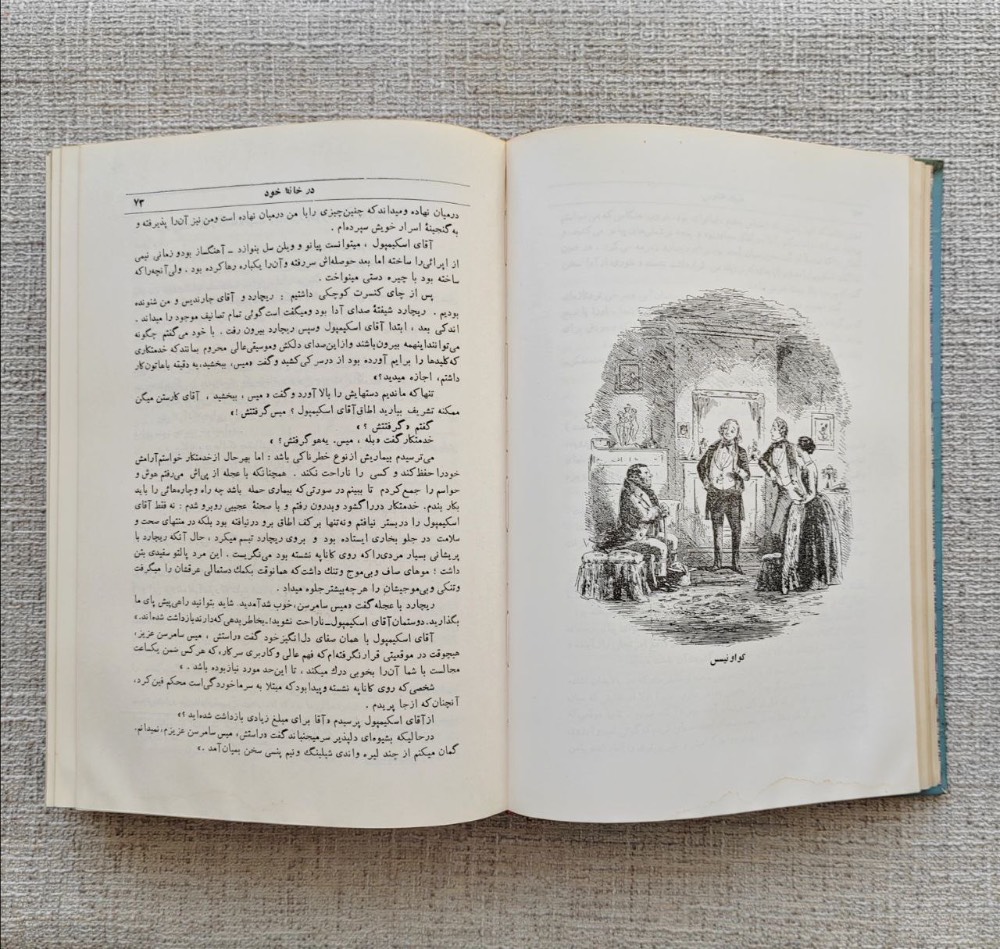 در خانه خود
۷۳
درمیان نهاده ومیداندکه چنین‌چیزی رابا من درمیان نهاده است ومن نیز آن‌را پذیرفته و
به‌گنجینهٔ اسرار خویش سپرده‌ام .
آقای اسکیمپول ، میتوانست پیانو و ویلن سل بنوازد ــ آهنگساز بودو زمانی نیمی
از اپرائی‌را ساخته اما بعد حوصله‌اش سررفته وآن‌را یکباره رهاکرده بود . ولی‌آنچه‌راکه
ساخته بود با چیره دستی مینواخت .
پس از چای کنسرت کوچکی داشتیم : ریچارد و آقای جارندیس و من شنونده
بودیم . ریچارد شیفتهٔ صدای آدا بود ومیگفت است‌گوئی تمام تصانیف موجود را میداند .
اندکی بعد ، ابتدا آقای اسکیمپول وسپس ریچارد بیرون رفت . با خود می‌گفتم چگونه
می‌تواننداینهمه بیرون‌باشند وازاین‌صدای دلکش وموسیقی‌عالی محروم بمانندکه خدمتکاری
که‌کلیدها را برایم آورده بود از درسرکی‌کشید وگفت «میس، ببخشید،یه دقیقه باهاتون‌کار
داشتم، اجازه میدید؟»
تنهاکه ماندیم دستهایش را بالا آورد وگفت « میس ، ببخشید ، آقای کارستن میگن
ممکنه تشریف بیارید اطاق‌آقای اسکیمپول ؟ میس‌گرفتتش !»
گفتم «گرفتتش ؟ »
خدمتکارگفت «بله ، میس، یه‌هوگرفتش ؟ »
می‌ترسیدم بیماریش ازنوع خطرناکی باشد : اما بهرحال ازخدمتکار خواستم‌آرامش
خودراحفظ‌کندو کسی را ناراحت نکند . همچنانکه با عجله از پی‌اش می‌رفتم هوش و
حواسم را جمع‌کردم تا ببینم در صورتی‌که بیماری حمله باشد چه راه وچاره‌هائی را باید
بکار بندم. خدمتکار دررا گشود وبدرون رفتم و با صحنهٔ عجیبی روبرو شدم : نه فقط آقای
اسکیمپول را دربستر نیافتم ونه‌تنها برکف اطاق برو درنیافته بود بلکه در منتهای صحت و
سلامت در جلو بخاری ایستاده بود و بروی ریچارد تبسم میکرد ، حال آنکه ریچارد با
پریشانی بسیار مردی‌راکه روی کاناپه نشسته بود می‌نگریست . این مرد پالتو سفیدی بتن
داشت ؛ موهای صاف وبی‌موج وتنك داشت‌که همانوقت بکمك دستمالی عرقشان را میگرفت
وتنکی وبی‌موجیشان را هرچه‌بیشتر جلوه میداد .
ریچارد با عجله‌گفت «میس سامرسن،خوب شدآمدید. شاید بتوانید راهی‌پیش پای ما
بگذارید. دوستمان‌آقای اسکیمپول‌ــ‌ناراحت نشوید!ـ‌بخاطر‌بدهی‌که‌دارندبازداشت شده‌اند.»
آقای اسکیمپول با همان صفای دل‌انگیزخود گفت «راستش ، میس سامرسن عزیز،
هیچوقت در موقعیتی قرارنگرفته‌ام‌که فهم عالی وکاربری سرکار، که هرکس ضمن یکساعت
مجالست با شما آن‌را بخوبی درك میکند ، تا این‌حد مورد نیازبوده باشد . »
شخصی‌که روی کاناپه نشسته وپیدابودکه مبتلا به سرماخوردگی‌است محکم فین‌کرد،
آنچنان‌که ازجا پریدم .
ازآقای اسکیمپول پرسیدم «آقا برای مبلغ زیادی بازداشت شده‌اید ؟»
درحالیکه بشیوه‌ای دلپذیر سرمیجنباندگفت «راستش، میس سامرسن عزیزم،نمیدانم.
گمان میکنم از چند لیره واندی شیلینگ ونیم پنسی سخن بمیان‌آمد .»
کواو نیسس